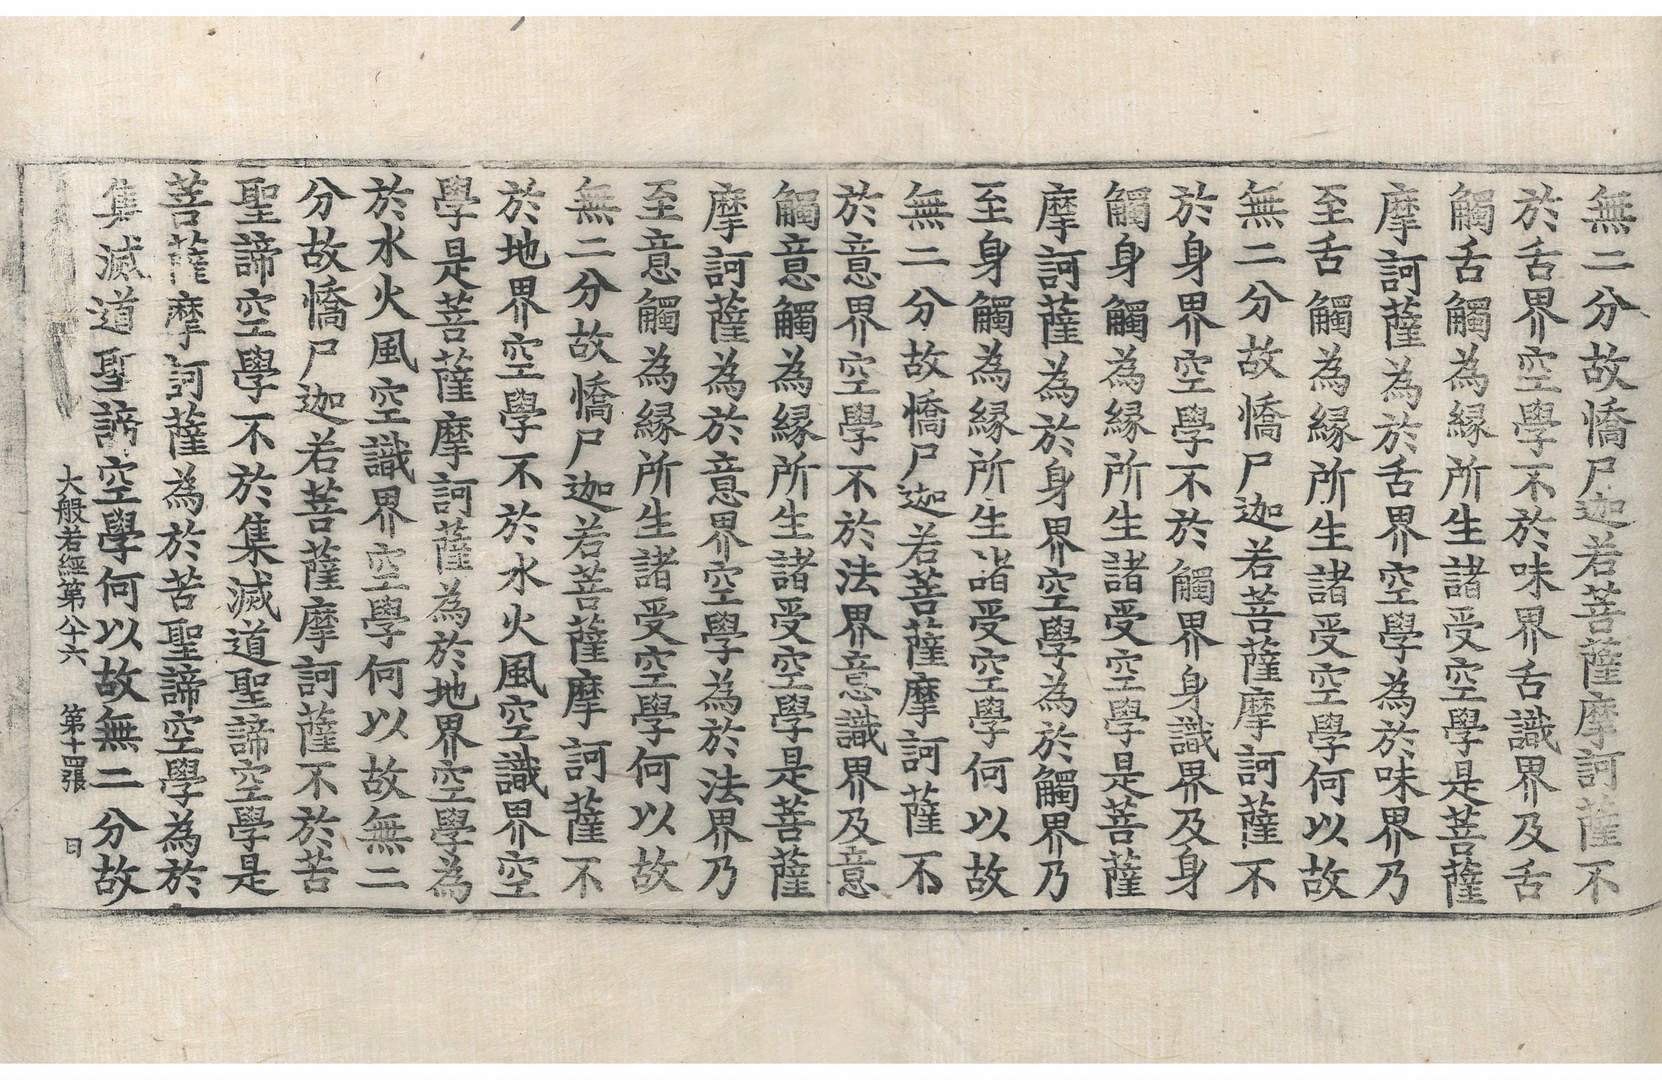 無二分故憍尸迦若菩薩摩訶薩不
於舌界空學不於味界舌識界及舌
觸舌觸為縁所生諸受空學是菩薩
摩訶薩為於舌界空學為於味界乃
至舌觸為縁所生諸受空學何以故
無二分故憍尸迦若菩薩摩訶薩不
於身界空學不於觸界身識界及身
觸身觸為縁所生諸受空學是菩薩
摩訶薩為於身界空學為於觸界乃
至身觸為縁所生諸受空學何以故
無二分故憍尸迦若菩薩摩訶薩不
於意界空學不於法界意識界及意
觸意觸為縁所生諸受空學是菩薩
摩訶薩為於意界空學為於法界乃
至意觸為縁所生諸受空學何以故
無二分故憍尸迦若菩薩摩訶薩不
於地界空學不於水火風空識界空
學是菩薩摩訶薩為於地界空學為
於水火風空識界空學何以故無二
分故憍尸迦若菩薩摩訶薩不於苦
聖諦空學不於集滅道聖諦空學是
菩薩摩訶薩為於苦聖諦空學為於
集滅道聖諦空學何以故無二分故
大般若經第八十六 第十四張 日